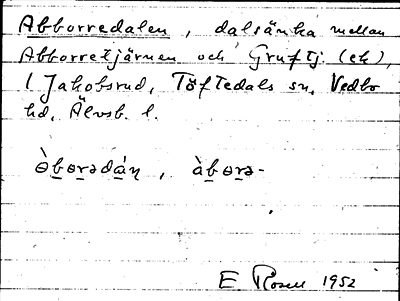 Abborredalen, dalsänka mellan
Abborretjärnen och Gruftj. (ek),
l Jakobsrud, Töftedals sn, Vedbo
hd, Älvsb. l.
òbɵrədáṇ, àbɵrə-
E. Rosell 1952